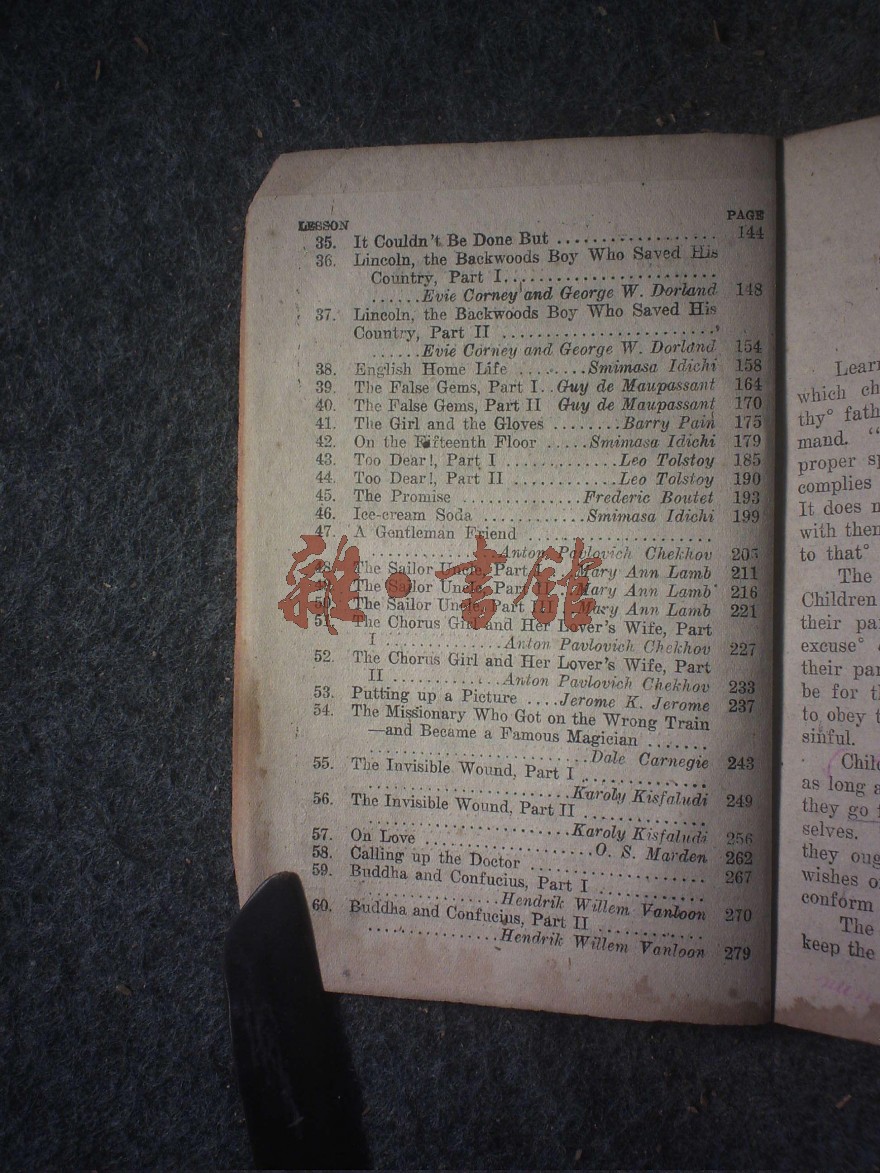 LESSON PAGE
35. It Couldn't Be Done But .................. 144
36. Lincoln, the Backwoods Boy Who Saved His
Country, Part I.........................
......Evie Corney and George W. Dorland 148
37. Lincoln, the Backwoods Boy Who Saved His
Country, Part II .........................
......Evie Corney and George W. Dorland 154
38. English Home Life .........Smimasa Idichi 158
39. The False Gems, Part I..Guy de Maupassant 164
40. The False Gems, Part II Guy de Maupassant 170
41. The Girl and the Gloves ........Barry Pain 175
42. On the Fifteenth Floor .....Smimasa Idichi 179
43. Too Dear!, Part I .............Leo Tolstoy 185
44. Too Dear!, Part II ............Leo Tolstoy 190
45. The Promise .............Frederic Boutet 193
46. Ice-cream Soda ...........Smimasa Idichi 199
47. A Gentleman Friend .....................
................Anton Pavlovich Chekhov 205
48. The Sailor Uncle, Part I ...Mary Ann Lamb 211
49. The Sailor Uncle, Part II ..Mary Ann Lamb 216
50. The Sailor Uncle, Part III ..Mary Ann Lamb 221
51. The Chorus Girl and Her Lover's Wife, Part
I .............Anton Pavlovich Chekhov 227
52. The Chorus Girl and Her Lover's Wife, Part
II ............Anton Pavlovich Chekhov 233
53. Putting up a Picture ....Jerome K. Jerome 237
54. The Missionary Who Got on the Wrong Train
—and Became a Famous Magician .......
........................Dale Carnegie 243
55. The Invisible Wound, Part I .............
......................Karoly Kisfaludi 249
56. The Invisible Wound, Part II .............
......................Karoly Kisfaludi 256
57. On Love ..................O. S. Marden 262
58. Calling up the Doctor .................. 267
59. Buddha and Confucius, Part I ...........
..............Hendrik Willem Vanloon 270
60. Buddha and Confucius, Part II ...........
..............Hendrik Willem Vanloon 279
雜·書館
Lear
which ch
thy° fath
mand. "
proper sp
complies
It does n
with then
to that°
The
Children
their pa
excuse°
their par
be for t
to obey t
sinful.
Chil
as long a
they go
selves.
they oug
wishes o
conform
The
keep the